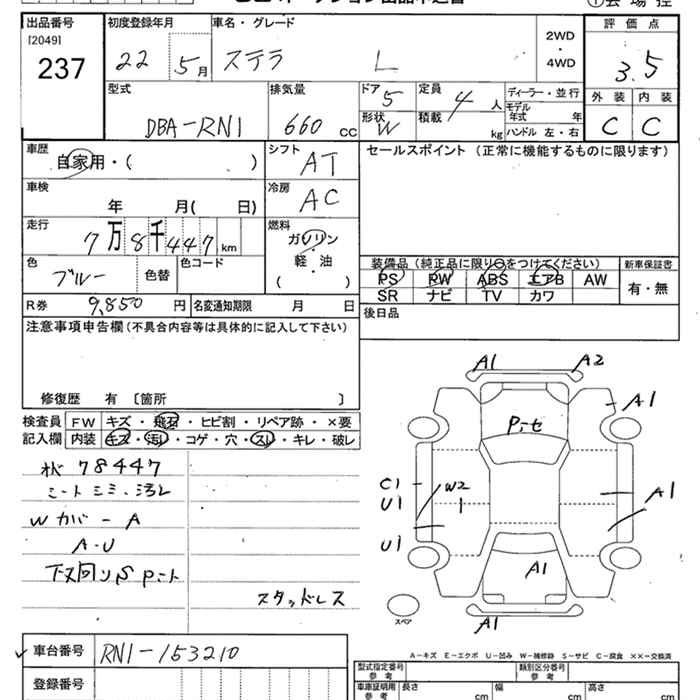 出品番号
[2049]
237
初度登録年月
22 5月
車名・グレード
ステラ L
2WD
・
4WD
評価点
3.5
外装 内装
C C
型式
DBA-RN1
排気量
660 CC
ドア 5
形状 W
定員 4 人
積載 kg
ディーラー・並行
モデル年式 年
ハンドル 左・右
車歴
自家用・( )
シフト
AT
セールスポイント (正常に機能するものに限ります)
車検
年 月( 日)
冷房
AC
走行
7万8千447km
燃料
ガソリン
軽・油
( )
色
ブルー 色替
色コード
装備品(純正品に限り○をつけてください)
PS PW ABS エアB AW
SR ナビ TV カワ
新車保証書
有・無
R券 9,850 円
名変通知期限 月 日
後日品
注意事項申告欄(不具合内容等は具体的に記入して下さい)
修復歴 有 〔箇所 〕
検査員記入欄
FW キズ・飛石・ヒビ割・リペア跡・×要
内装 キズ・汚れ・コゲ・穴・スレ・キレ・破レ
78447
Wカバー A
A-U
スタッドレス
A1 A2
A1
C1
U1
W2
A1
U1
A1
A1
スペア
A-キズ E-エクボ U-凹み W-補修跡 S-サビ C-腐食 ××-交換済
車台番号 RN1-153210
登録番号
型式指定番号
参考
類別区分番号
参考
車庫証明用
参考
長さ cm
幅 cm
高さ cm